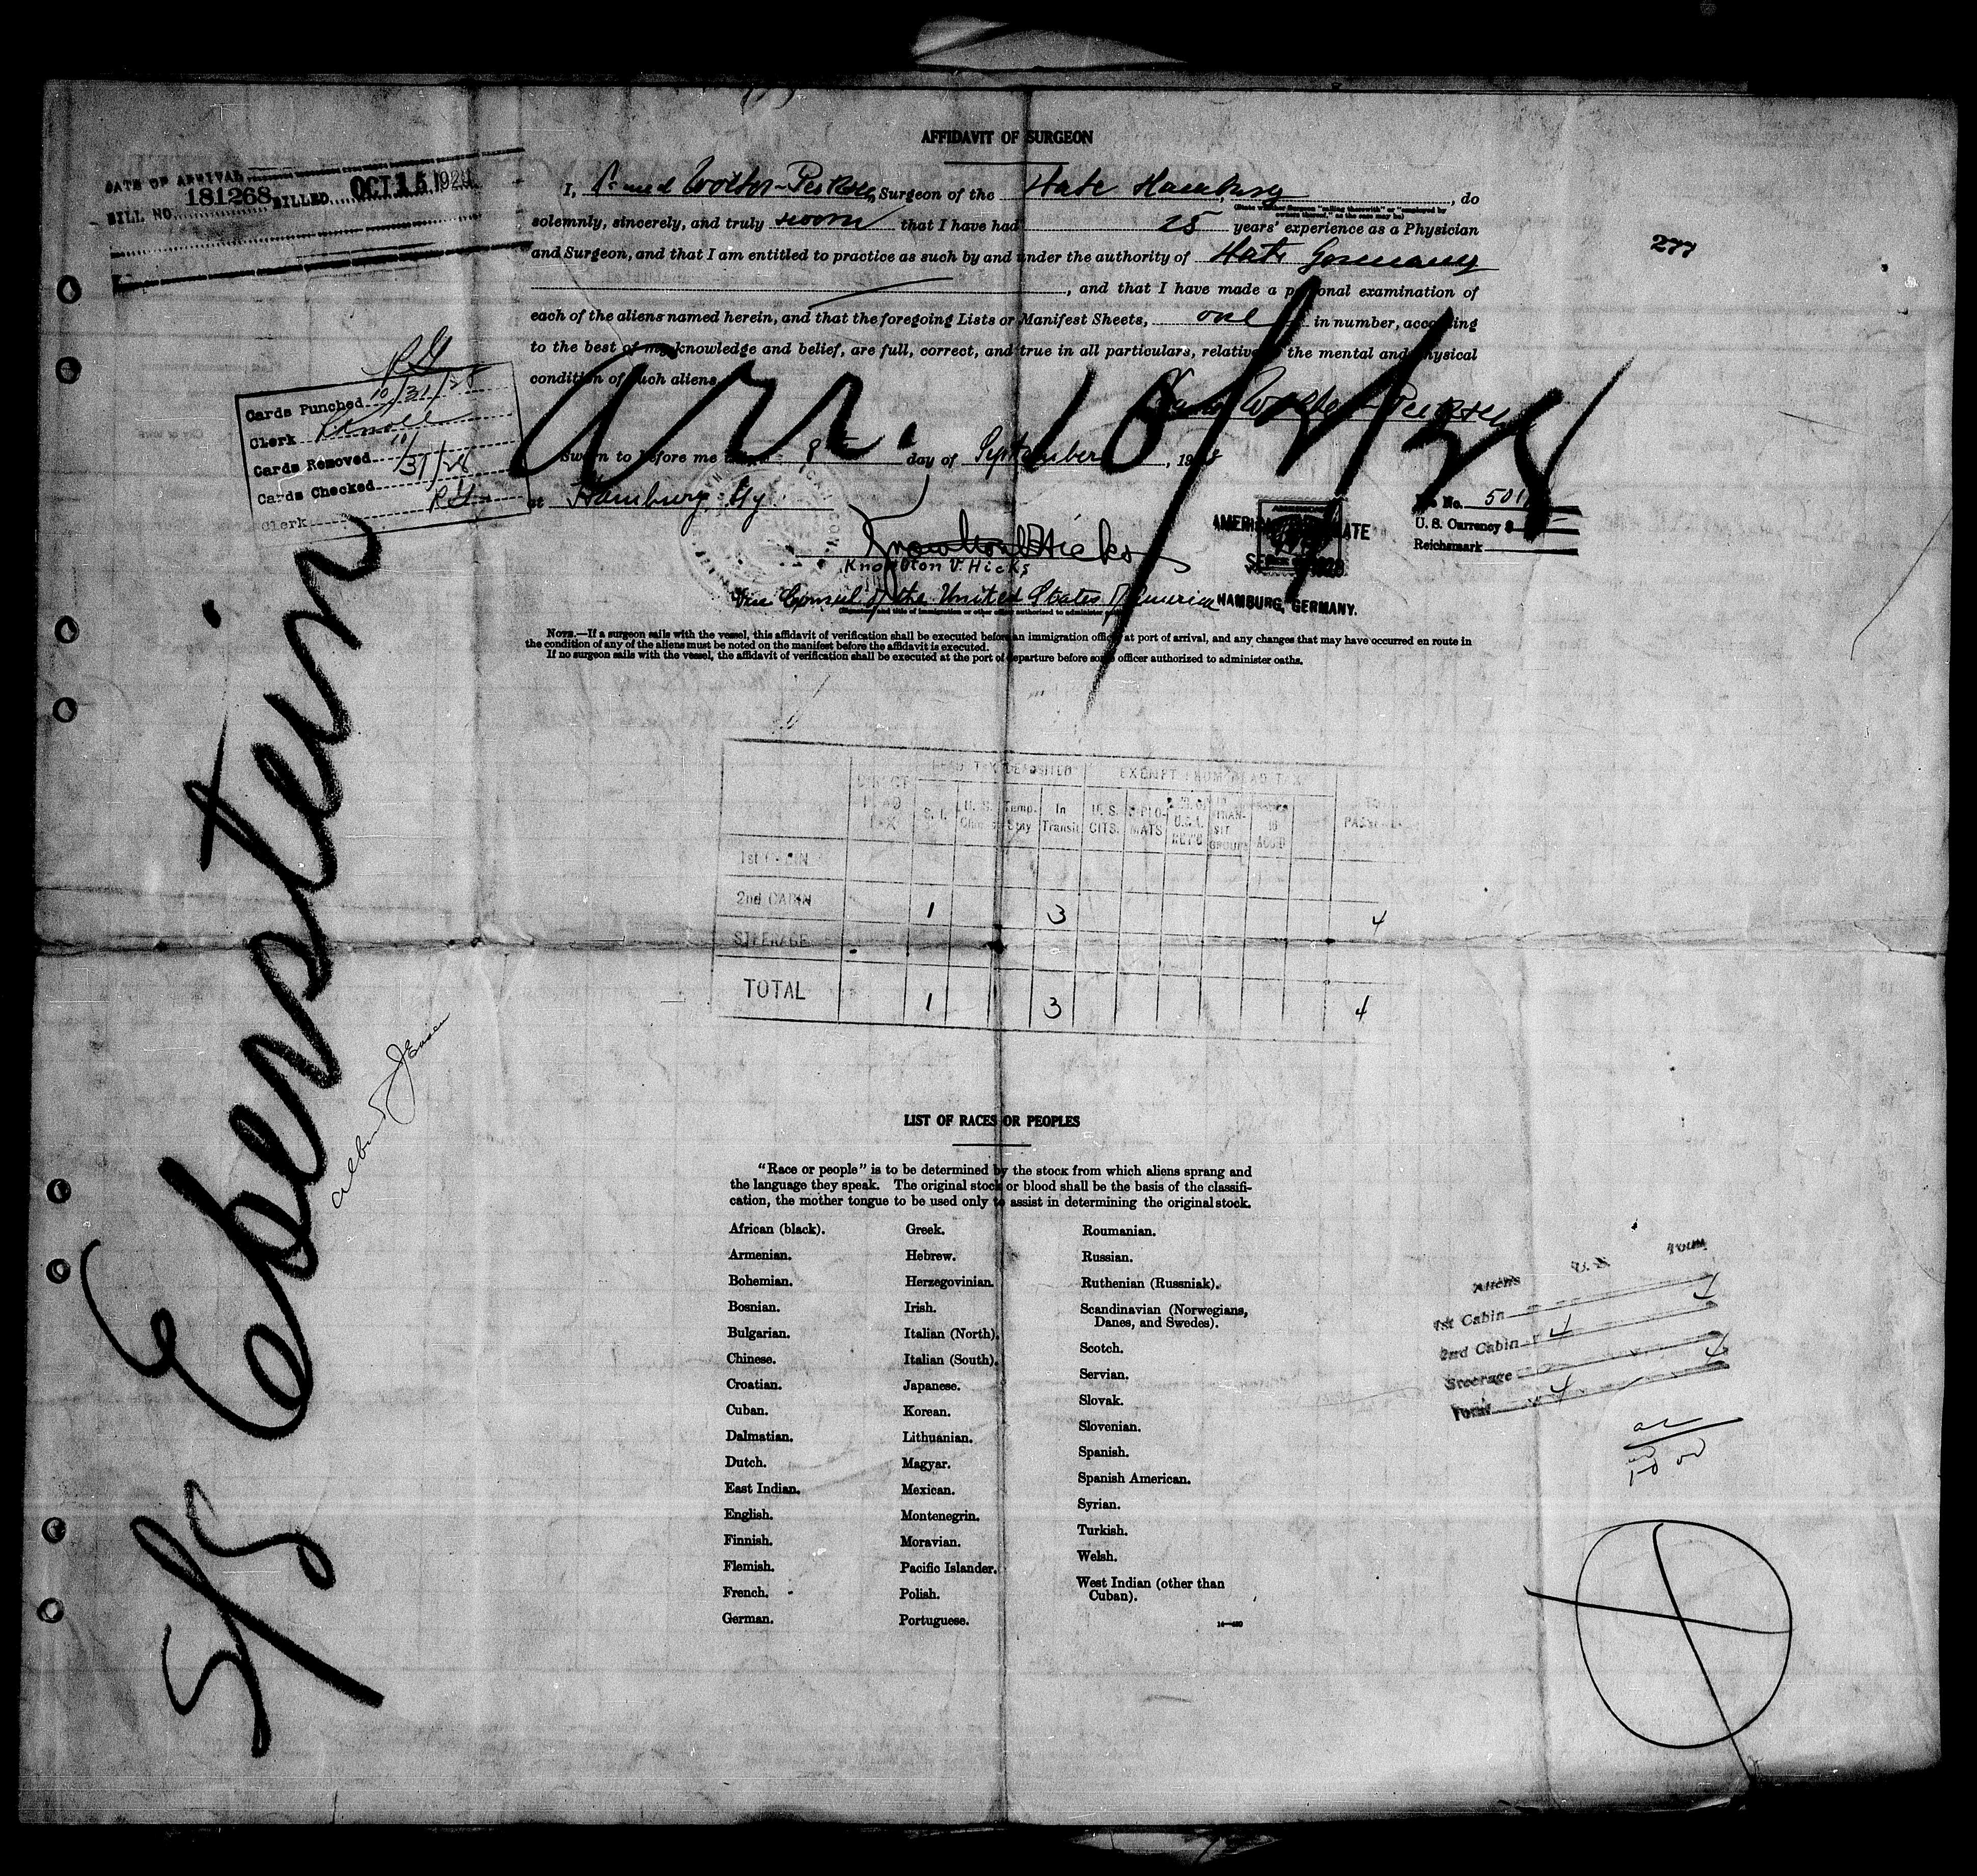 AFFIDAVIT OF SURGEON
DATE OF ARRIVAL
BILL NO. 181268 BILLED OCT 15 1928
277
I, Wolter-Pecksen, Surgeon of the State Hamburg, do
(State whether Surgeon "sailing therewith" or "employed by
owners thereof," as the case may be)
solemnly, sincerely, and truly sworn that I have had 25 years' experience as a Physician
and Surgeon, and that I am entitled to practice as such by and under the authority of State Germany
, and that I have made a personal examination of
each of the aliens named herein, and that the foregoing Lists or Manifest Sheets, one in number, according
to the best of my knowledge and belief, are full, correct, and true in all particulars, relative the mental and physical
condition of such aliens
arr. 10/2/28
RG
Cards Punched 10/31/28
Clerk RKnoll
Cards Removed 10/31/28
Cards Checked
Clerk RG
Sworn to before me 8th day of September, 1928
at Hamburg, Gy.
Knowlton V. Hicks
Knowlton V. Hicks
Vice Consul of the United States of America
(Signature and title of immigration or other officer authorized to administer oaths)
AMERICAN CONSULATE
SEP 1928
HAMBURG, GERMANY.
No. 501
U. S. Currency $
Reichsmark
NOTE.—If a surgeon sails with the vessel, this affidavit of verification shall be executed before an immigration officer at port of arrival, and any changes that may have occurred en route in
the condition of any of the aliens must be noted on the manifest before the affidavit is executed.
If no surgeon sails with the vessel, the affidavit of verification shall be executed at the port of departure before some officer authorized to administer oaths.
S/S Eberstein
HEAD TAX DEPOSITED EXEMPT FROM HEAD TAX
DIRECT HEAD TAX S. I. U. S. Temp. Stay In Transit U. S. CITS. DIPLOMATS TRANSIT GROUPS
1st CABIN
2nd CABIN 1 3 4
STEERAGE
TOTAL 1 3 4
LIST OF RACES OR PEOPLES
"Race or people" is to be determined by the stock from which aliens sprang and
the language they speak. The original stock or blood shall be the basis of the classifi-
cation, the mother tongue to be used only to assist in determining the original stock.
African (black).
Armenian.
Bohemian.
Bosnian.
Bulgarian.
Chinese.
Croatian.
Cuban.
Dalmatian.
Dutch.
East Indian.
English.
Finnish.
Flemish.
French.
German.
Greek.
Hebrew.
Herzegovinian.
Irish.
Italian (North).
Italian (South).
Japanese.
Korean.
Lithuanian.
Magyar.
Mexican.
Montenegrin.
Moravian.
Pacific Islander.
Polish.
Portuguese.
Roumanian.
Russian.
Ruthenian (Russniak).
Scandinavian (Norwegians,
Danes, and Swedes).
Scotch.
Servian.
Slovak.
Slovenian.
Spanish.
Spanish American.
Syrian.
Turkish.
Welsh.
West Indian (other than
Cuban).
Aliens U. S. Total
1st Cabin 4
2nd Cabin 4
Steerage 4
Total 4